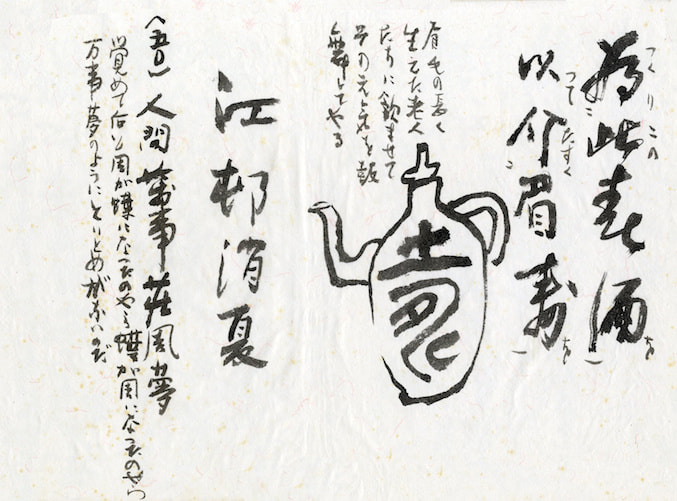 為此春酒
つくり この を
以介眉壽
つて たすく を
眉毛の長く
生えた老人
たちに飲ませて
その元気を鼓
舞してやる
江邨消夏
人間萬事荘周夢
覚めて 周が蝶になったのやら蝶が周になったのやら
万事夢のようにとりとめがないのだ